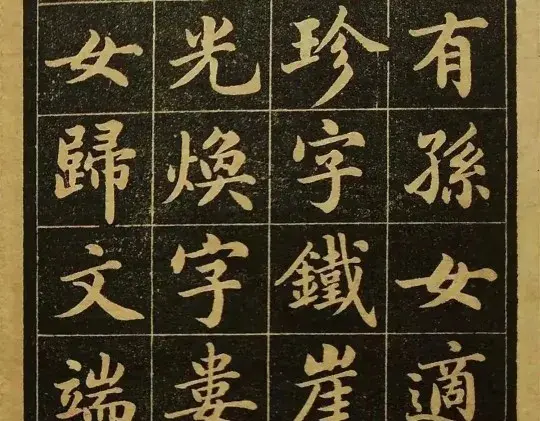 有孫女適
珍字鐵崖
光煥字婁
女歸文端